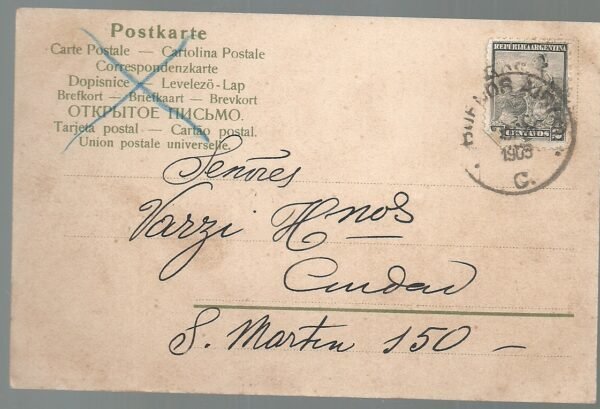 Postkarte
Carte Postale — Cartolina Postale
Correspondenzkarte
Dopisnice — Levelező-Lap
Brefkort — Briefkaart — Brevkort
ОТКРЫТОЕ ПИСЬМО.
Tarjeta postal — Cartão postal.
Union postale universelle.
REPUBLICA ARGENTINA
CENTAVOS 2
BUENOS AIRES
1905
C.
Señores
Varzi Hnos
Ciudad
S. Martin 150 —